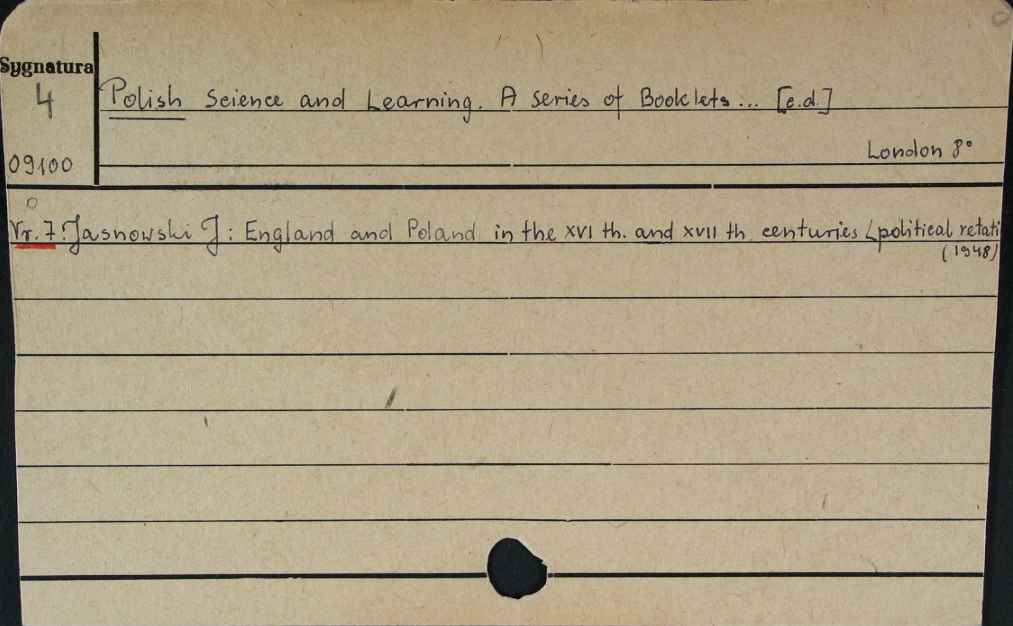 Sygnatura
4
Polish Science and Learning. A series of Booklets... [e.d.]
London 8°
09100
Nr. 7: Jasnowski J: England and Poland in the XVI th. and XVII th centuries (political relati
(1948)